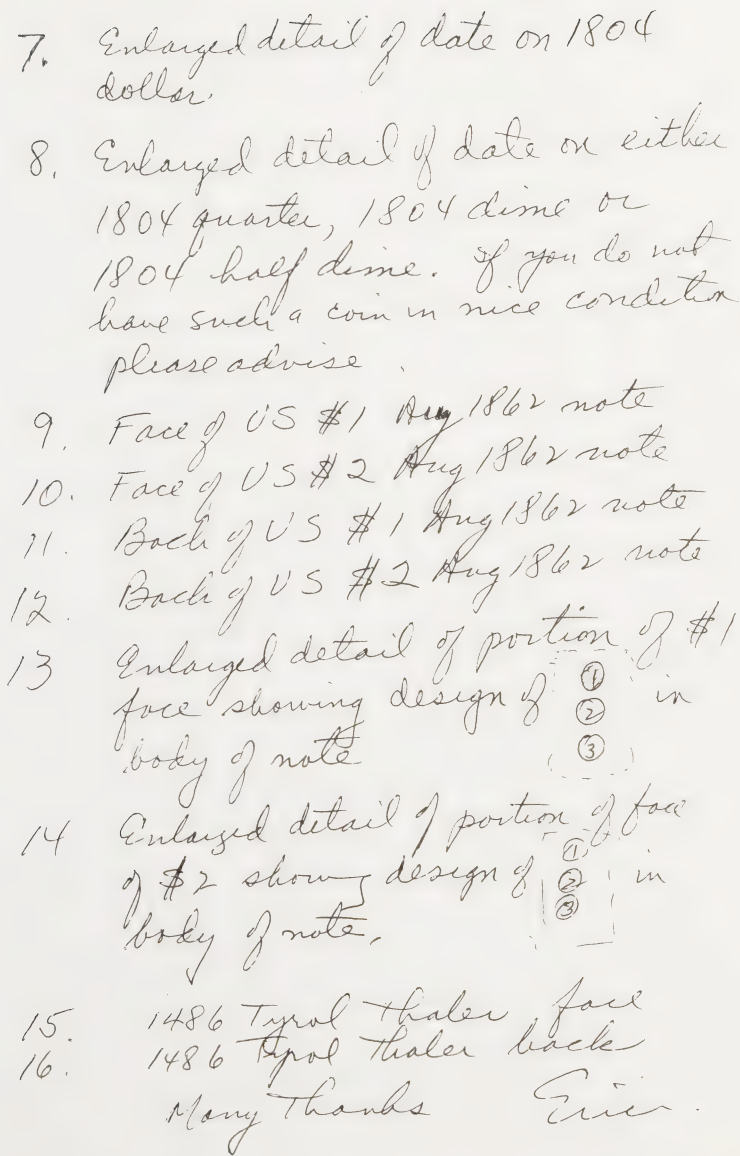 7. Enlarged detail of date on 1804
dollar.
8. Enlarged detail of date on either
1804 quarter, 1804 dime or
1804 half dime. If you do not
have such a coin in nice condition
please advise.
9. Face of US $1 Aug 1862 note
10. Face of US $2 Aug 1862 note
11. Back of US $1 Aug 1862 note
12. Back of US $2 Aug 1862 note
13 Enlarged detail of portion of $1
face showing design of ① in
②
③
body of note
14 Enlarged detail of portion of face
①
of $2 showing design of ② in
③
body of note.
15. 1486 Tyrol Thaler face
16. 1486 Tyrol Thaler back
Many Thanks Eric.